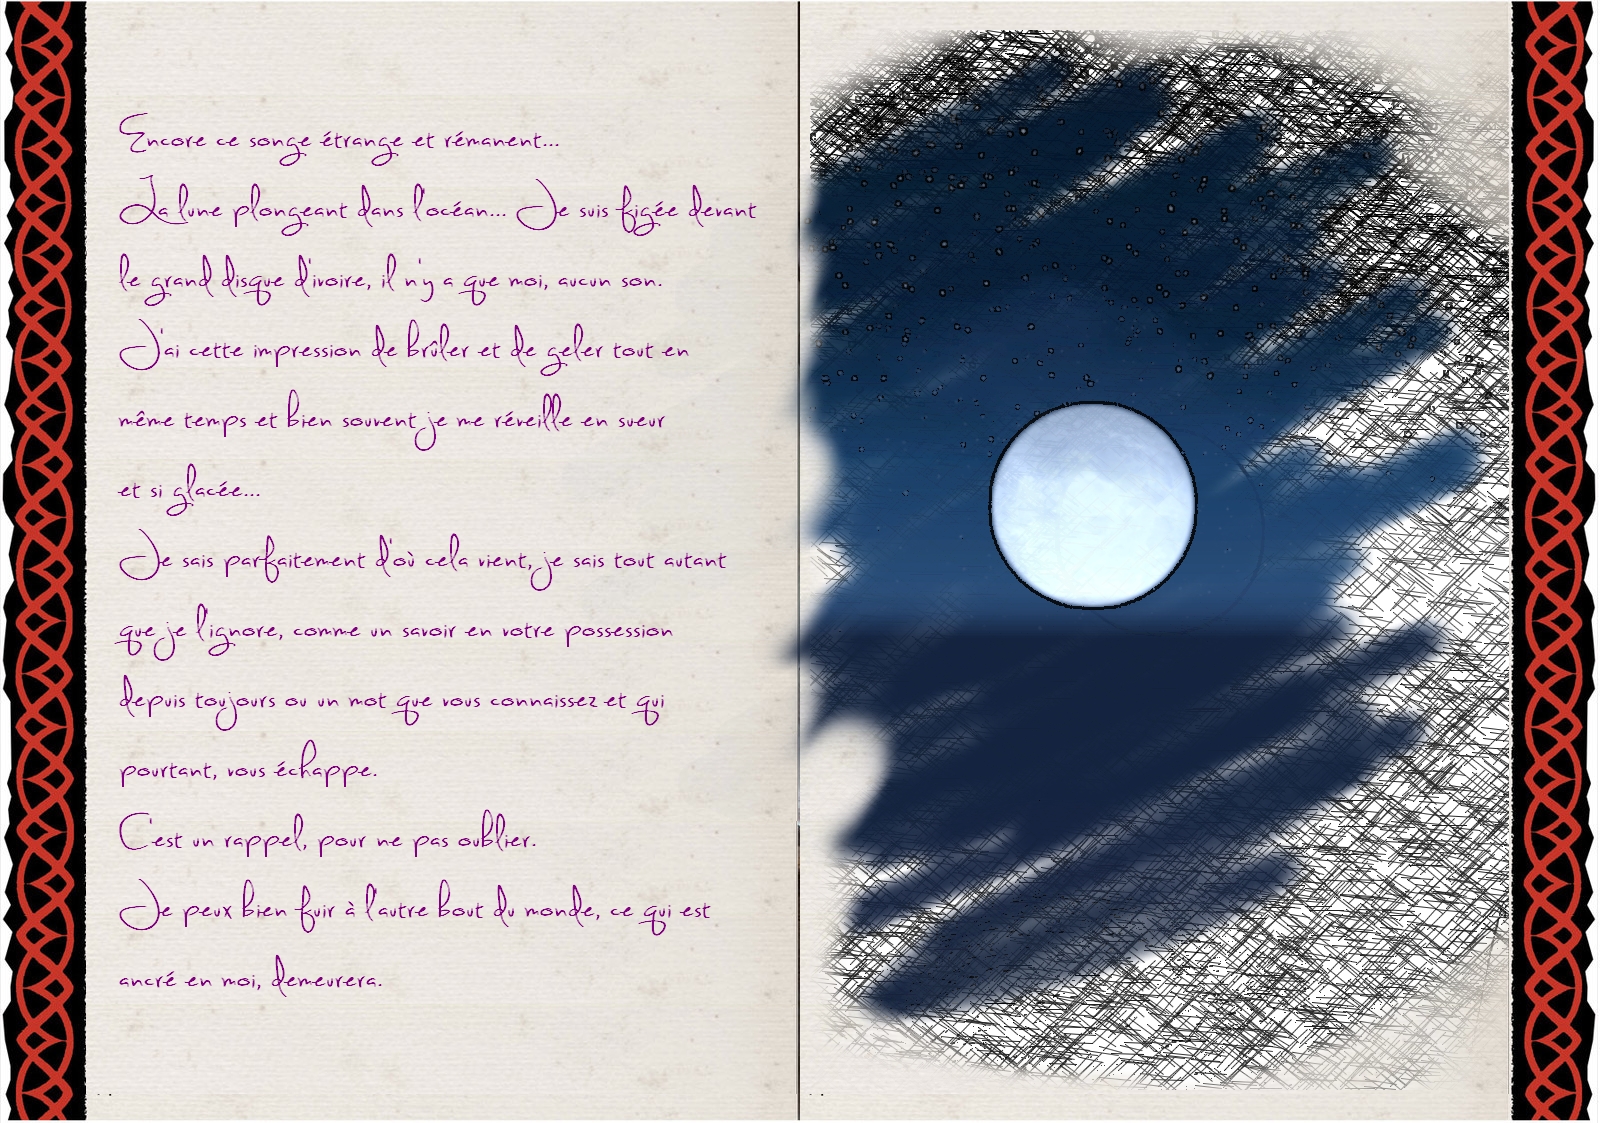 Encore ce songe étrange et rémanent...
La lune plongeant dans l'océan... Je suis figée devant
le grand disque d'ivoire, il n'y a que moi, aucun son.
J'ai cette impression de brûler et de geler tout en
même temps et bien souvent je me réveille en sueur
et si glacée...
Je sais parfaitement d'où cela vient, je sais tout autant
que je l'ignore, comme un savoir en votre possession
depuis toujours ou un mot que vous connaissez et qui
pourtant, vous échappe.
C'est un rappel, pour ne pas oublier.
Je peux bien fuir à l'autre bout du monde, ce qui est
ancré en moi, demeurera.